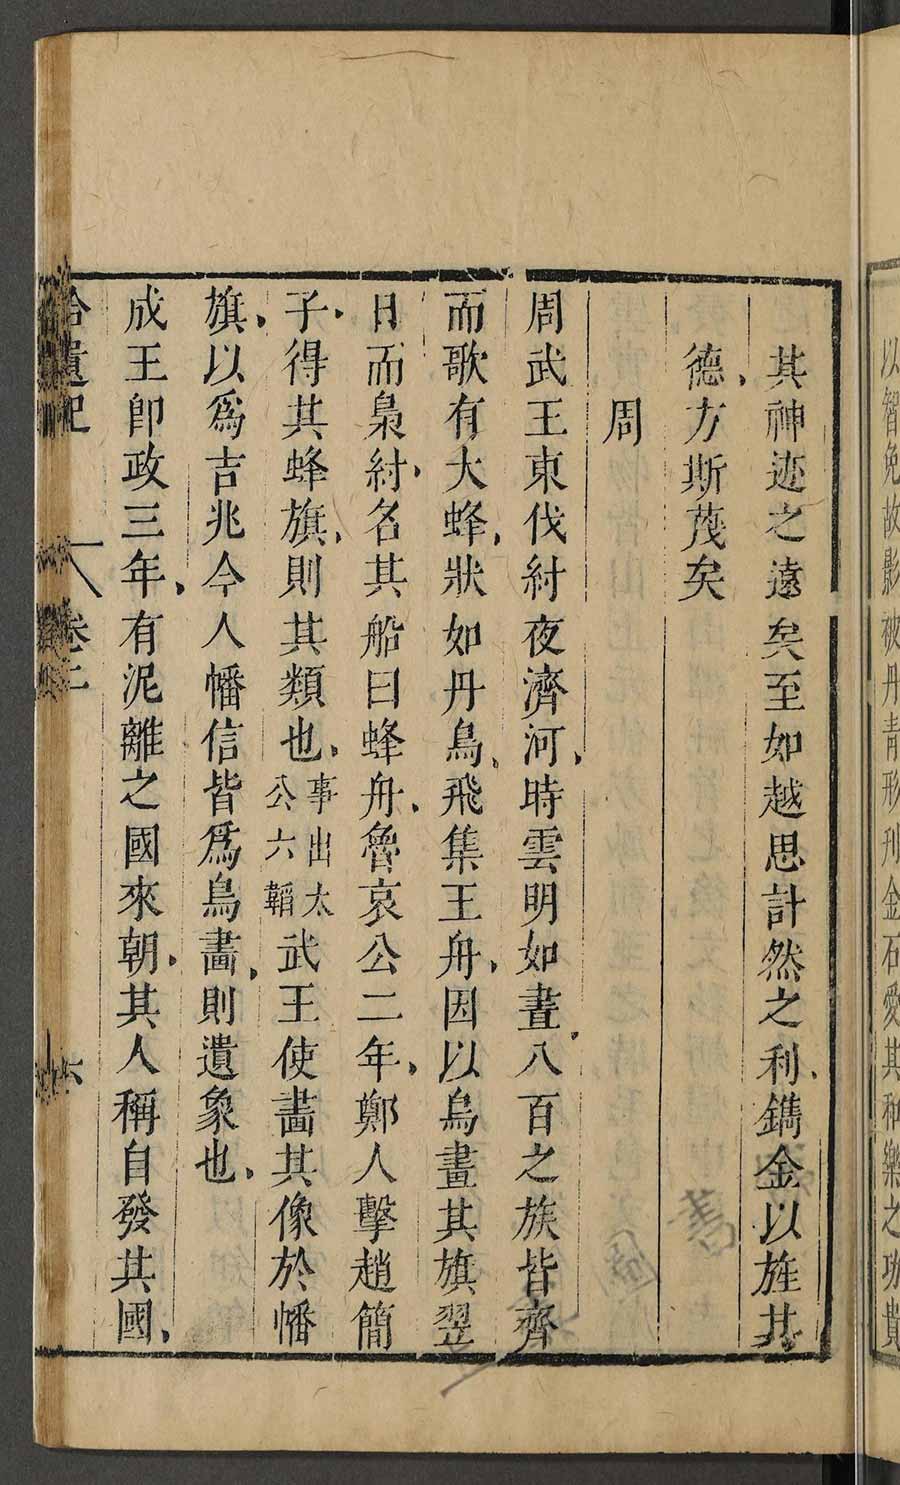 以智免故影被丹青形刋金石愛其和樂之功貴
其神迹之遠矣至如越思計然之利鐫金以旌其
德方斯蔑矣
周
周武王東伐紂夜濟河時雲明如晝八百之族皆齊
而歌有大蜂狀如丹鳥飛集王舟因以鳥畫其旗翌
日而梟紂名其船曰蜂舟魯哀公二年鄭人擊趙簡
子得其蜂旗則其類也事出太公六韜武王使畵其像於幡
旗以爲吉兆今人幡信皆爲鳥畵則遺象也
成王卽政三年有泥離之國來朝其人稱自發其國
拾遺記 卷二 六